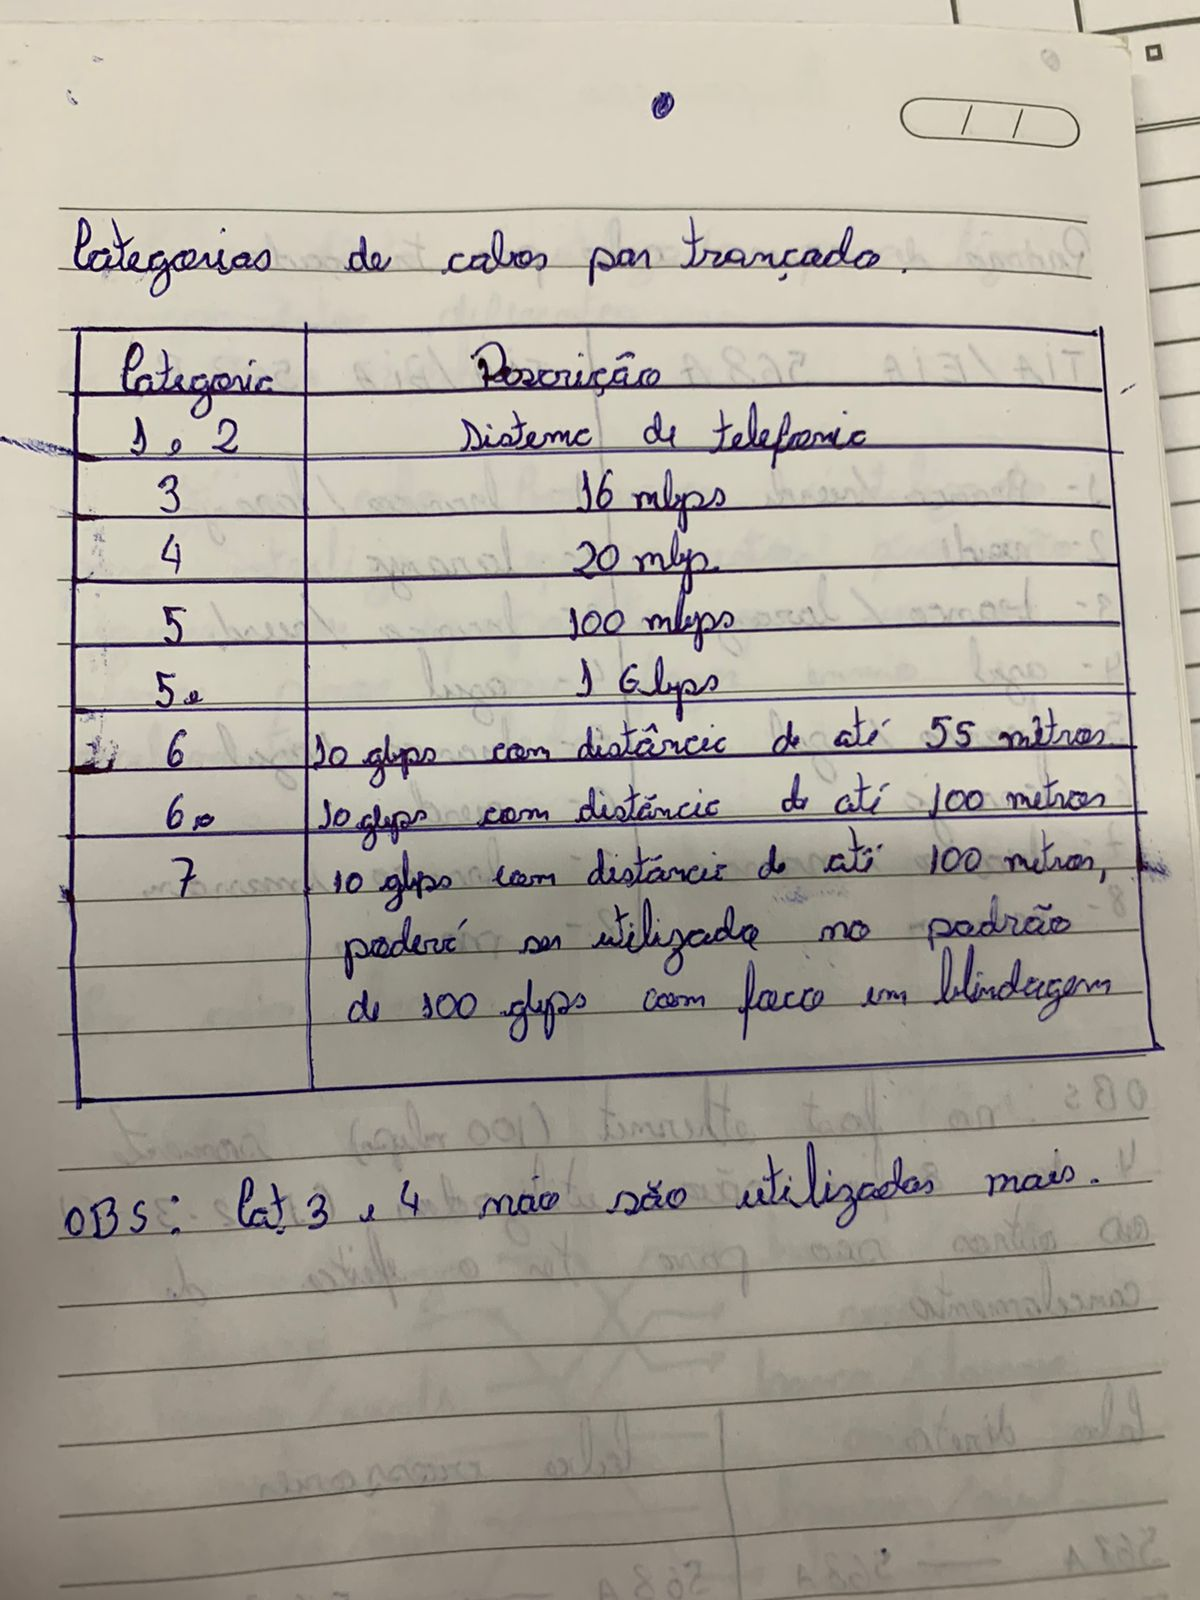 Categorias de cabos par trançado.
Categoria Descrição
1 e 2 Sistema de telefonia
3 16 mbps
4 20 mbp
5 100 mbps
5e 1 Gbps
6 10 gbps com distância de até 55 metros
6a 10 gbps com distância de até 100 metros
7 10 gbps com distância de até 100 metros,
poderá ser utilizada no padrão
de 100 gbps com foco em blindagem
OBS: Cat. 3 e 4 não são utilizadas mais.